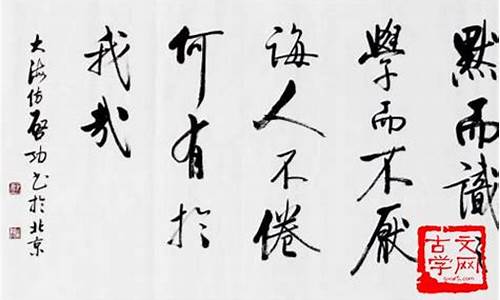 默而識之
學而不厭
誨人不倦
何有於
我哉
大海仿啓功书於北京
古文
学网